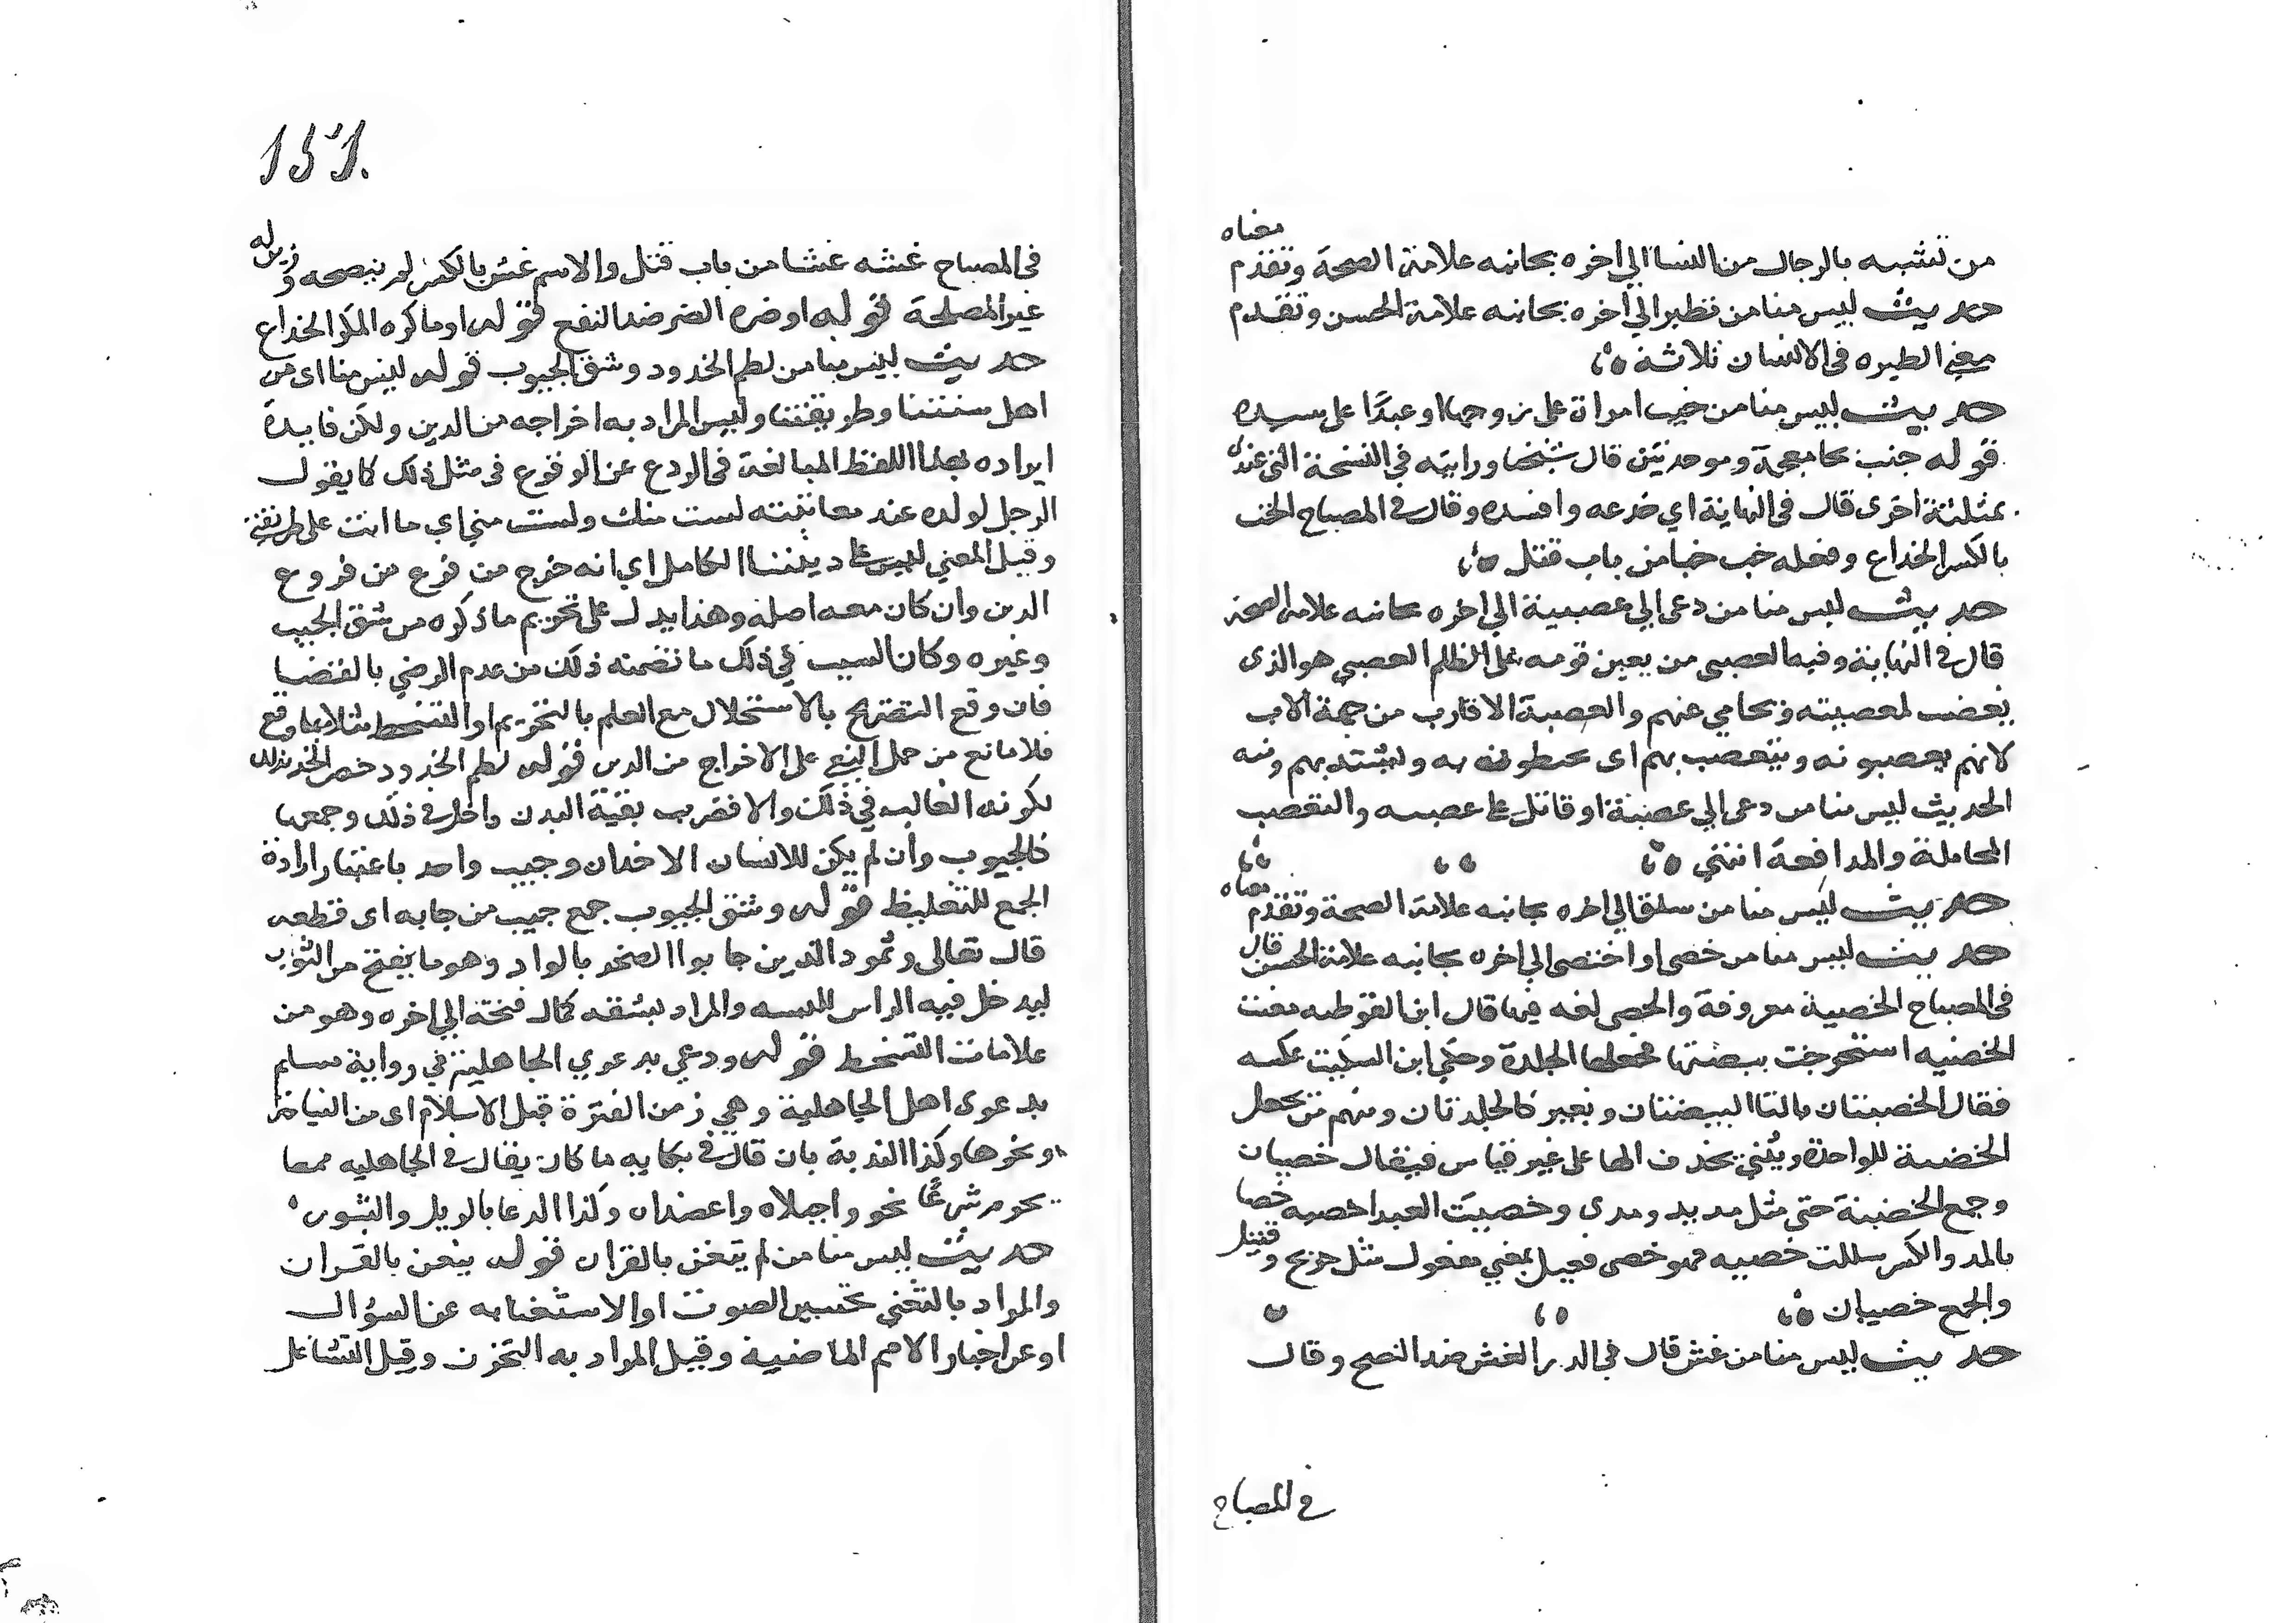 من تشبه بالرجال من النسا الي اخره بجانبه علامة الصحة وتقدم معناه
حديث ليس منا من تطير الي اخره بجانبه علامة الحسن وتقدم
معني الطيره في الانسان ثلاثة
حديث ليس منا من خبب امراة على زوجها او عبدًا على سيده
قوله خبب بخا معجمة وموحدتين قال شيخنا ورايته في النسخة التي عندي
بمثلثة اخرى قال في النهاية اي خدعه وافسده وقال في المصباح الخب
بالكسر الخداع وفعله خب خبا من باب قتل
حديث ليس منا من دعى الي عصبية الي اخره بجانبه علامة الصحة
قال في النهاية وفيه العصبى من يعين قومه على الظلم العصبي هو الذى
يغضب لعصبيته ويحامي عنهم والعصبة الاقارب من جهة الاب
لانهم يعصبونه ويتعصب بهم اى يحيطون به وليشتد بهم ومنه
الحديث ليس منا من دعى الي عصبية او قاتل على عصبيه والتعصب
المحاملة والمدافعة انتهي
حديث ليس منا من سلق الي اخره بجانبه علامة الصحة وتقدم معناه
حديث ليس منا من خصى او اختصى الي اخره بجانبه علامة الحسن قال
في المصباح الخصية معروفة والخصى لغه فيها قال ابن القوطيه معنت
الخصيه استخرجت بيضتها فجعلها الجلدة وحكي ابن السكيت عكسه
فقال الخصيتان بالتا البيضتان وبغير تا الجلدتان ومنهم من يجعل
الخصية للواحدة ويُثني بحذف الها على غير قياس فيقال خصيان
وجمع الخصية خصى مثل مديه ومدى وخصيت العبد اخصيه خصا
بالمد والكسر سللت خصييه فهو خصى فعيل بمعني مفعول مثل جريح وقتيل
والجمع خصيان
حديث ليس منا من غش قال في الدر الغش ضد النصح وقال
في المصباح
151.
في المصباح غشه غشا من باب قتل والاسم غش بالكسر لم ينصحه وزين له
غير المصلحة قوله او ضره الضر ضد النفع قوله او ماكره المكر الخداع
حديث ليس منا من لطم الخدود وشق الجيوب قوله ليس منا اى من
اهل سنتنا وطريقتنا وليس المراد به اخراجه من الدين ولكن فايدة
ايراده بهذا اللفظ المبالغة في الردع عن الوقوع في مثل ذلك كما يقول
الرجل لولده عند معاتبته لست منك ولست مني اي ما انت على طريقتي
وقيل المعني ليس على ديننا الكامل اي انه خرج من فرع من فروع
الدين وان كان معه اصله وهذا يدل على تحريم ما ذكره من شق الجيب
وغيره وكان السبب في ذلك ما تضمنه ذلك من عدم الرضي بالقضا
فان وقع التصريح بالاستحلال مع العلم بالتحريم او التسخط مثلا بما وقع
فلا مانع من حمل النفي على الاخراج من الدين قوله لطم الخدود خص الخد بذلك
لكونه الغالب في ذلك والا فضرب بقية البدن داخل في ذلك وجمعها
كالجيوب وان لم يكن للانسان الا خدان وجيب واحد باعتبار ارادة
الجمع للتغليظ قوله وشق الجيوب جمع جيب من جابه اى قطعه
قال تعالى وثمود الذين جابوا الصخر بالواد وهو ما يفتح من الثوب
ليدخل فيه الراس للبسه والمراد بشقه كمال فتحه الي اخره وهو من
علامات التسخط قوله ودعي بدعوي الجاهلية في رواية مسلم
بدعوى اهل الجاهلية وهي زمن الفترة قبل الاسلام اى من النياحة
ونحوها وكذا الندبة بان قال في بكايه ما كان يقال في الجاهليه مما
يحرم شرعًا نحو واجبلاه واعضداه وكذا الدعا بالويل والثبور
حديث ليس منا من لم يتغن بالقران قوله يتغن بالقران
والمراد بالتغني تحسين الصوت او الاستغنا به عن السؤال
او عن اخبار الامم الماضية وقيل المراد به التحزن وقيل التشاغل